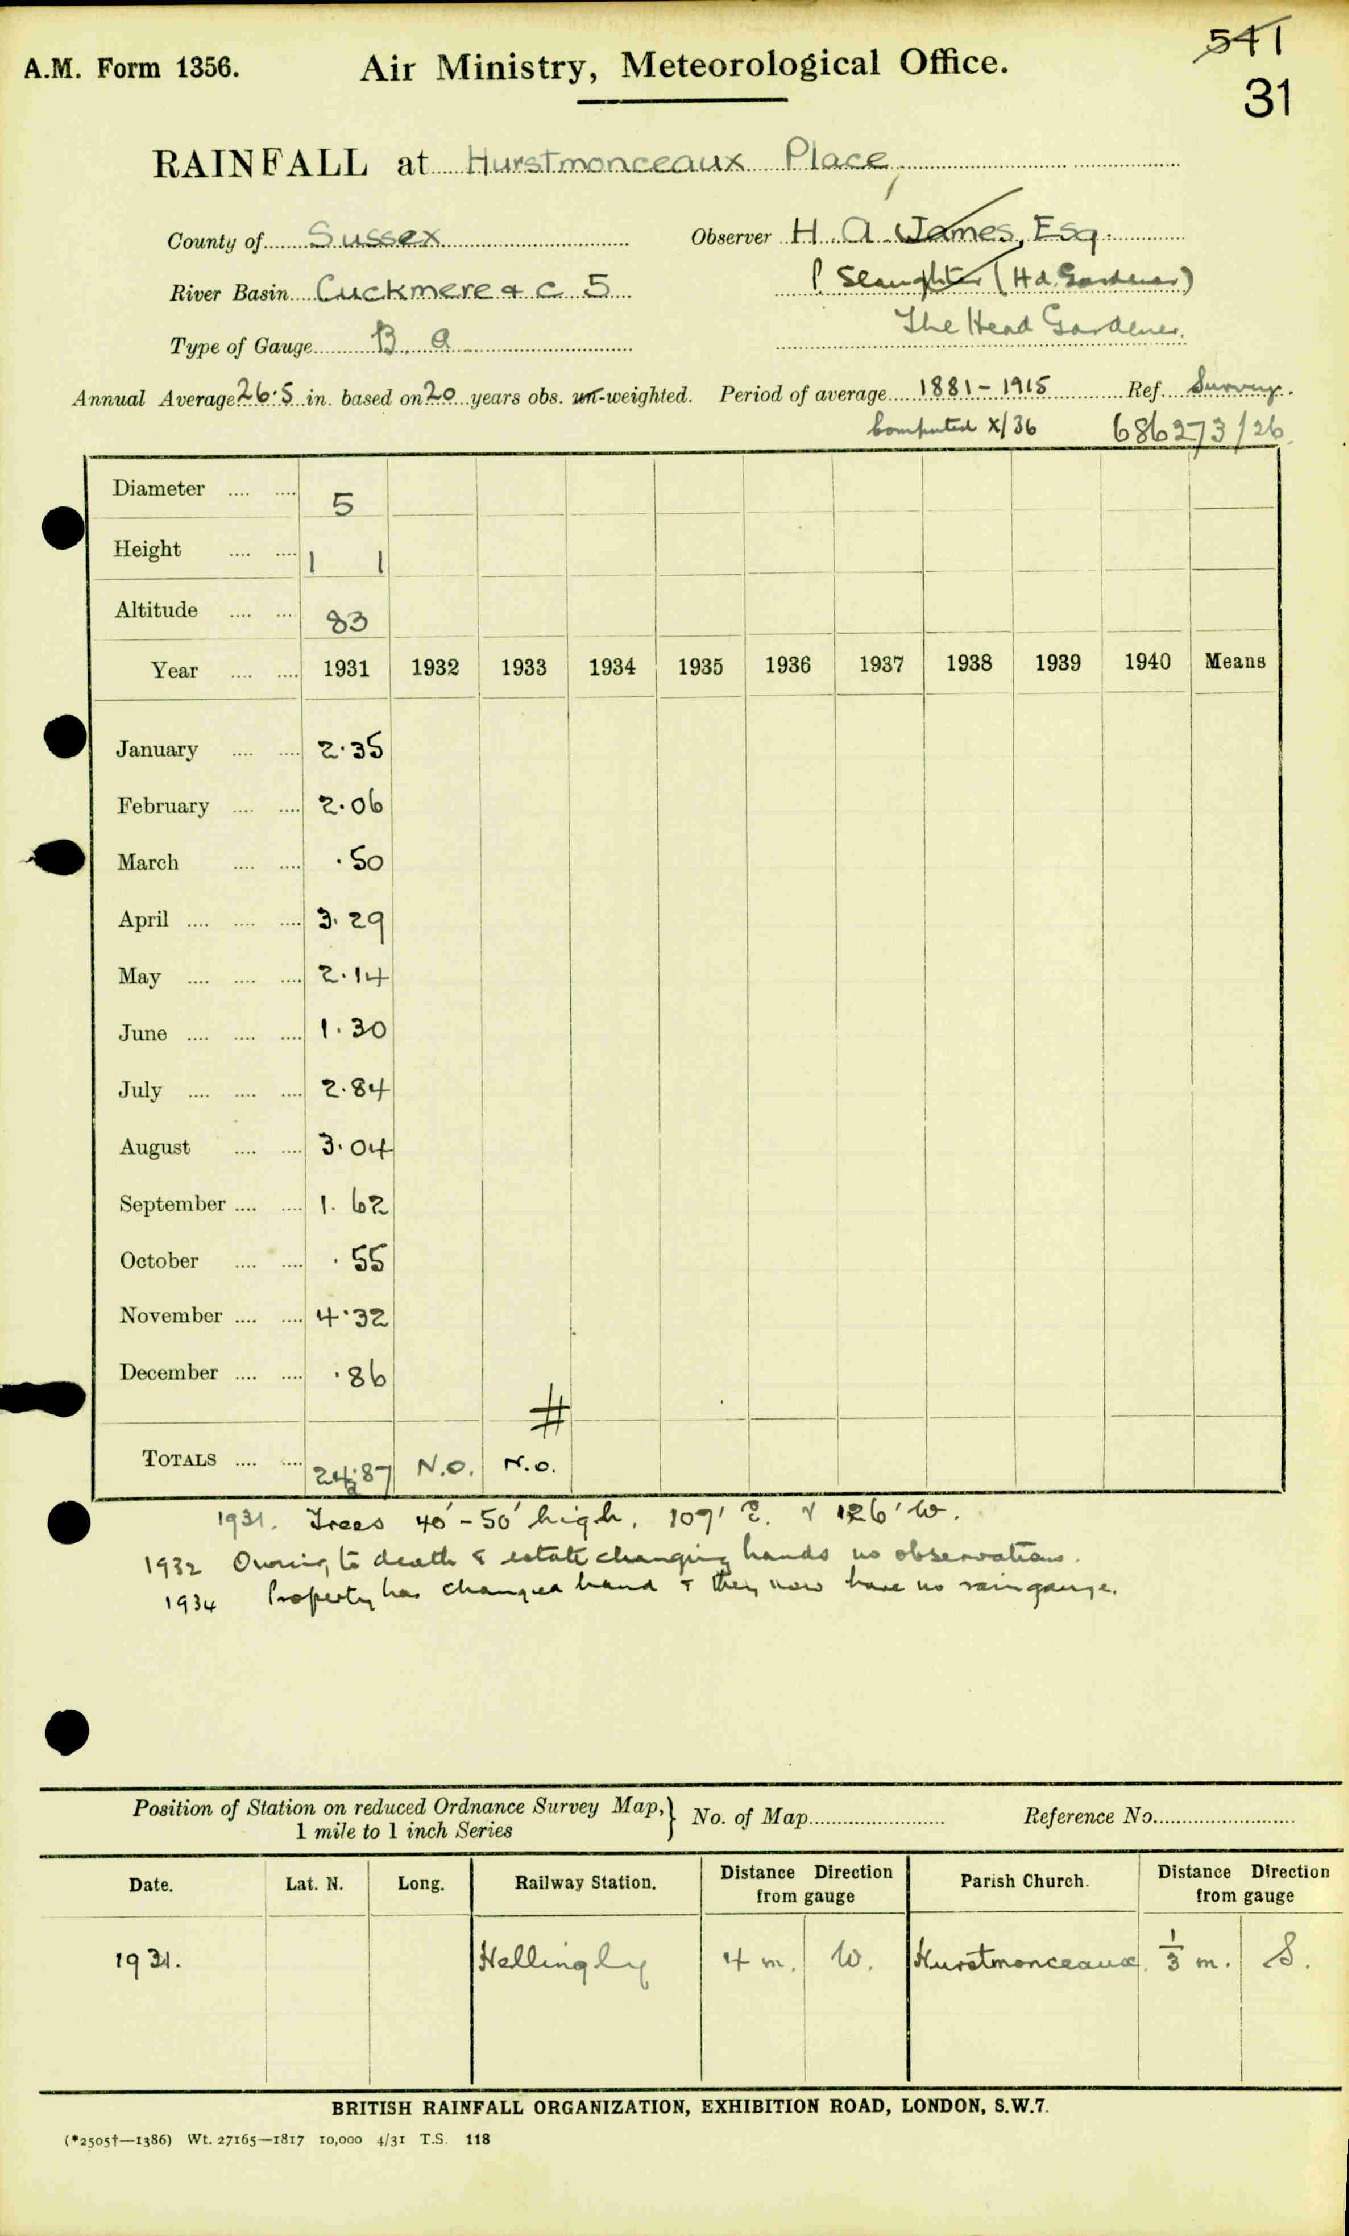 A.M. Form 1356.
Air Ministry, Meteorological Office.
541
31
RAINFALL at Hurstmonceaux Place,
County of Sussex Observer H. A. James, Esq.
River Basin Cuckmere & C 5 P Slaughter (Hd. Gardener)
The Head Gardener.
Type of Gauge B a
Annual Average 26.5 in. based on 20 years obs. un-weighted. Period of average 1881-1915 Ref. Survey.
Computed X/36 686273/26
Diameter .... .... 5
Height .... .... 1 1
Altitude .... .... 83
Year .... .... 1931 1932 1933 1934 1935 1936 1937 1938 1939 1940 Means
January .... .... 2.35
February .... .... 2.06
March .... .... .50
April .... .... .... 3.29
May .... .... .... 2.14
June .... .... .... 1.30
July .... .... .... 2.84
August .... .... 3.04
September .... .... 1.62
October .... .... .55
November .... .... 4.32
December .... .... .86
#
TOTALS .... .... 24.87 N.O. N.O.
1931. Trees 40'-50' high, 109' E. & 126' W.
1932 Owing to death & estate changing hands no observations.
1934 Property has changed hand & they now have no raingauge.
Position of Station on reduced Ordnance Survey Map, } No. of Map Reference No.
1 mile to 1 inch Series
Date. Lat. N. Long. Railway Station. Distance Direction from gauge Parish Church. Distance Direction from gauge
1931. Hellingly 4 m. W. Hurstmonceaux. 1/3 m. S.
BRITISH RAINFALL ORGANIZATION, EXHIBITION ROAD, LONDON, S.W.7.
(*2505†—1386) Wt. 27165—1817 10,000 4/31 T.S. 118